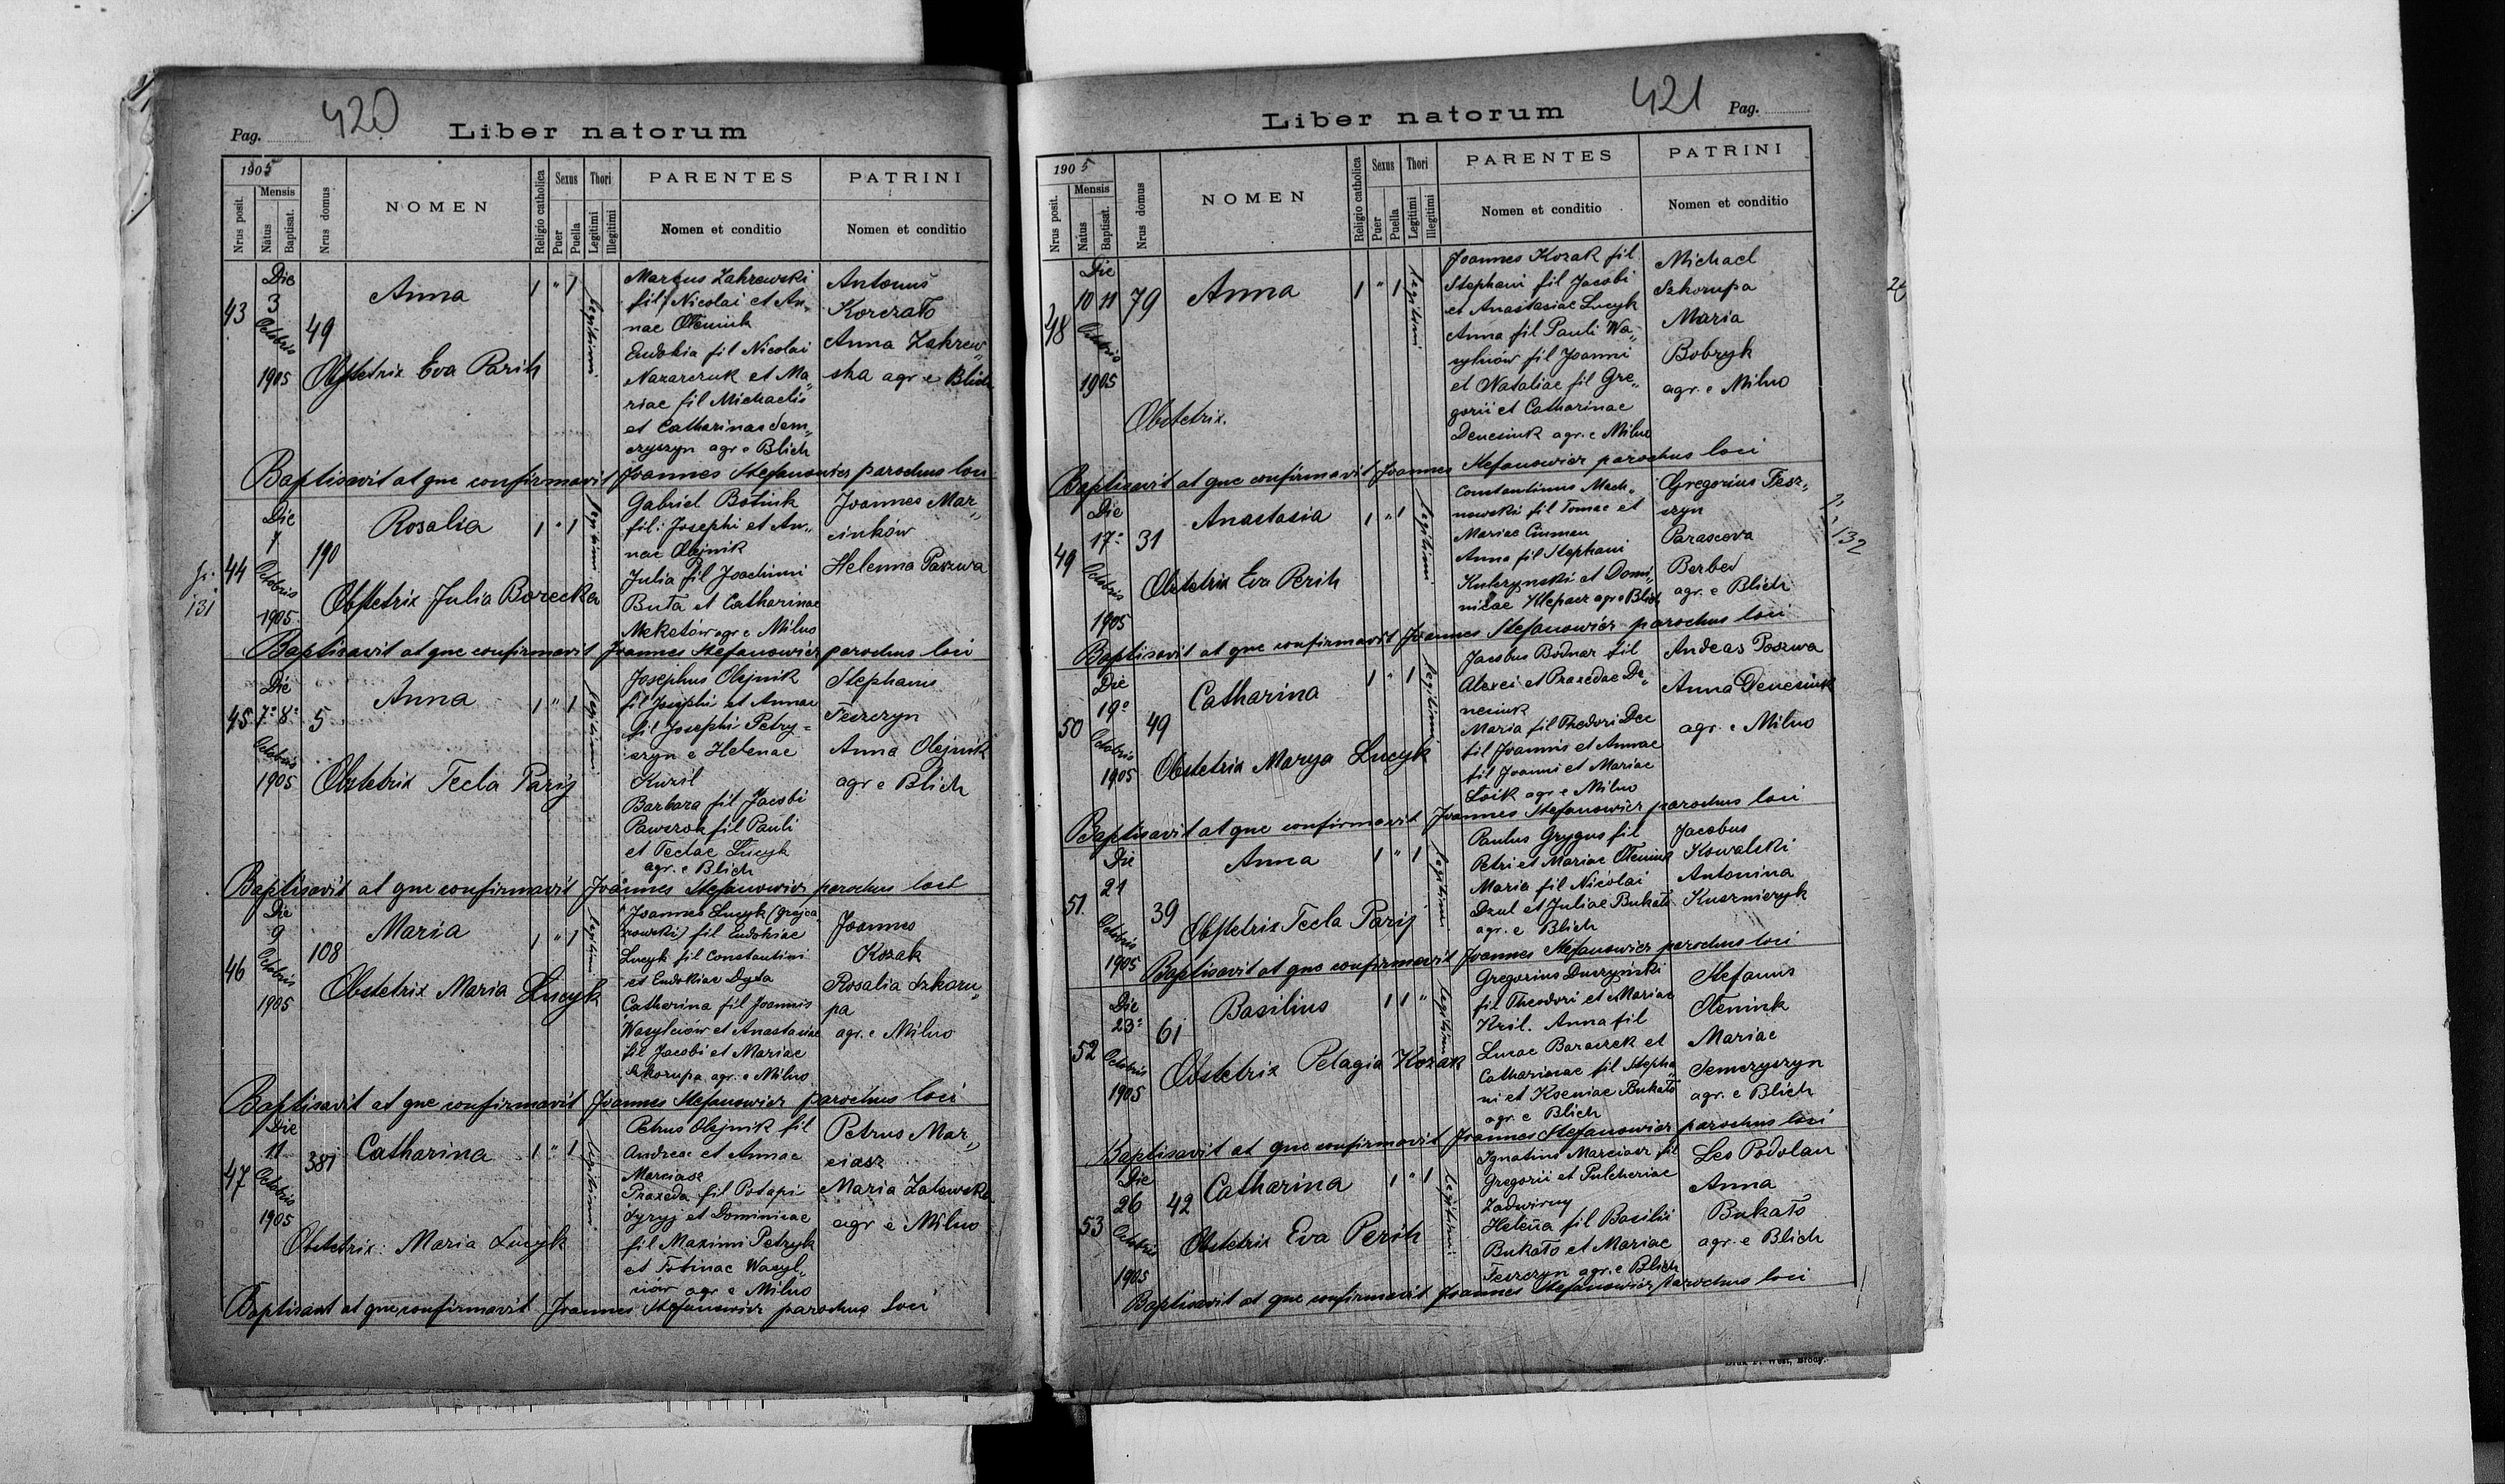 420
Pag.
Liber natorum
1905
Nrus posit.
Mensis
Natus
Baptisat.
Nrus domus
NOMEN
Religio catholica
Sexus
Puer
Puella
Thori
Legitimi
Illegitimi
PARENTES
Nomen et conditio
PATRINI
Nomen et conditio
43
Die
3
Octobris
1905
49
Anna
1 " 1
legitimi
Obstetrix Eva Parih
Marcus Zakrewski
fil Nicolai et An„
nae Oleniuk
Eudokia fil Nicolai
Nazarczuk et Ma„
riae fil Michaelis
et Catharinae Sem„
czyszyn agr e Blich
Antonius
Korczało
Anna Zakrew„
ska agr e Blich
Baptisavit atque confirmavit Joannes Stefanowicz parochus loci
131
44
Die
7
Octobris
1905
190
Rosalia
1 " 1
legitimi
Obstetrix Julia Borecka
Gabriel Botiuk
fil: Josephi et An„
nae Olejnik
Julia fil Joachimi
Buła et Catharinae
Meketów agr e Milno
Joannes Mar„
cinków
Helenna Paszwa
Baptisavit atque confirmavit Joannes Stefanowicz parochus loci
45
Die
7 8
Octobris
1905
5
Anna
1 " 1
legitimi
Obstetrix Tecla Parij
Josephus Olejnik
fil Josiphi et Annae
fil Josephi Petry=
szyn e Helenae
Barbara fil Jacobi
fil Pauli
et Teclae Lucyk
agr. e Blich
Stephanus
Feszczyn
Anna Olejnik
agr e Blich
Baptisavit atque confirmavit Joannes Stefanowicz parochus loci
46
Die
9
Octobris
1905
108
Maria
1 " 1
legitimi
Obstetrix Maria Lucyk
Joannes Lucyk
fil Eudokiae
Lucyk fil Constantini
et Eudokiae Dyda
Catharina fil Joannis
Wasylciów et Anastasiae
fil Jacobi et Mariae
Szkorupa agr. e Milno
Joannes
Kozak
Rosalia Szkoru„
pa
agr. e Milno
Baptisavit atque confirmavit Joannes Stefanowicz parochus loci
47
Die
11
Octobris
1905
381
Catharina
1 " 1
legitimi
Obstetrix: Maria Lucyk
Petrus Olejnik fil
Andreae et Annae
Marciasz
Praxeda fil Potapi
et Dominicae
fil Maximi Petryk
et Fotinae Wasyl„
ciów agr e Milno
Petrus Mar„
ciasz
Maria Zalewska
agr e Milno
Baptisavit atque confirmavit Joannes Stefanowicz parochus loci
Liber natorum
421
Pag.
1905
Nrus posit.
Mensis
Natus
Baptisat.
Nrus domus
NOMEN
Religio catholica
Sexus
Puer
Puella
Thori
Legitimi
Illegitimi
PARENTES
Nomen et conditio
PATRINI
Nomen et conditio
48
Die
10 11
Octobris
1905
79
Anna
1 " 1
legitimi
Obstetrix.
Joannes Kozak fil
Stephani fil Jacobi
et Anastasiae Lucyk
Anna fil Pauli Wa„
sylciów fil Joanni
et Nataliae fil Gre„
gorii et Catharinae
Denesiuk agr. e Milno
Michael
Szkorupa
Maria
Bobryk
agr. e Milno
Baptisavit atque confirmavit Joannes Stefanowicz parochus loci
49
Die
17
Octobris
1905
31
Anastasia
1 " 1
legitimi
Obstetrix Eva Perih
Constantinus Mach„
nowski fil Tomae et
Mariae
Anna fil Stephani
Kulczynski et Domi„
nicae Klepacz agr e Blich
Gregorius Fesz„
szyn
Parascova
agr. e Blich
132
Baptisavit atque confirmavit Joannes Stefanowicz parochus loci
50
Die
19
Octobris
1905
49
Catharina
1 " 1
legitimi
Obstetrix Marya Lucyk
Jacobus Bodnar fil
Alexei et Praxedae De„
nesiuk
Maria fil Thedori Dec
fil Joannis et Annae
fil Joanni et Mariae
agr e Milno
Andeas Poszwa
Anna Denesiuk
agr. e Milno
Baptisavit atque confirmavit Joannes Stefanowicz parochus loci
51.
Die
21
Octobris
1905
39
Anna
1 " 1
legitimi
Obstetrix Tecla Parij
Paulus Grygus fil
Petri et Mariae Oleniuk
Maria fil Nicolai
Dzul et Juliae Bukało
agr. e Blich
Jacobus
Kowalski
Antonina
Kusznieryk
Baptisavit atque confirmavit Joannes Stefanowicz parochus loci
52
Die
23
Octobris
1905
61
Basilius
1 1 "
legitimi
Obstetrix Pelagia Kozak
Gregorius Duszyński
fil Theodori et Mariae
Kril. Anna fil
Lucae Baraszek et
Catharinae fil Stepha„
ni et Kseniae Bukało
agr. e Blich
Stefanus
Oleniuk
Mariae
Semczyszyn
agr. e Blich
Baptisavit atque confirmavit Joannes Stefanowicz parochus loci
53
Die
26
Octobris
1905
42
Catharina
1 " 1
legitimi
Obstetrix Eva Perih
Ignatius Marciasz fil
Gregorii et Pulcheriae
Zadwirny
Helena fil Basilii
Bukało et Mariae
Feszczyn agr. e Blich
Leo Podolan
Anna
Bukało
agr. e Blich
Baptisavit atque confirmavit Joannes Stefanowicz parochus loci
Druk F. West, Brody.